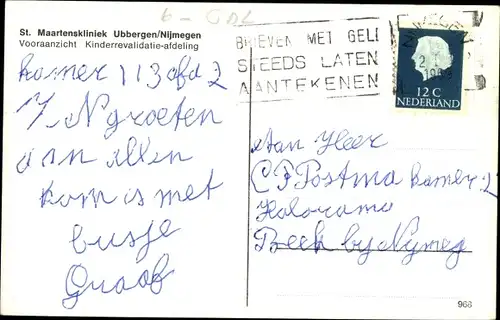 6 - GDL
St. Maartenskliniek Ubbergen/Nijmegen
Vooraanzicht Kinderrevalidatie-afdeling
BRIEVEN MET GELD
STEEDS LATEN
AANTEKENEN
12 C
NEDERLAND
kamer 113 afd 2
groeten
aan allen
kom is met
busje
Aan Heer
C P Postma kamer 2
Beek by Nymeg
968